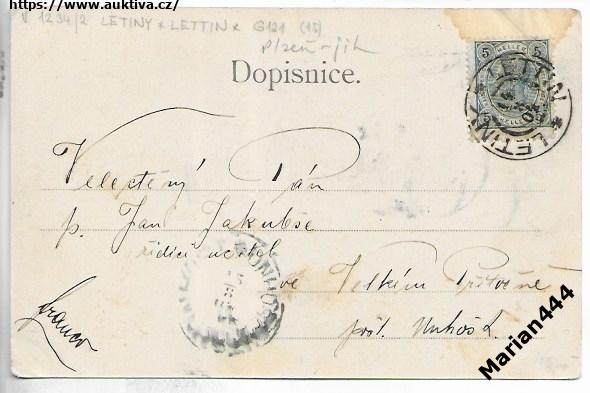 https://www.auktiva.cz/
V 1234/2 LETINY * LETTIN * G121 (15)
Plzeň - jih
Dopisnice.
5 HELLER 5
LETINY * LETTIN *
Velectěný Pán
p. Jan Jakubše
řídící učitel
ve Velkém Přítočně
pošt. Unhošť
franco
Marian444